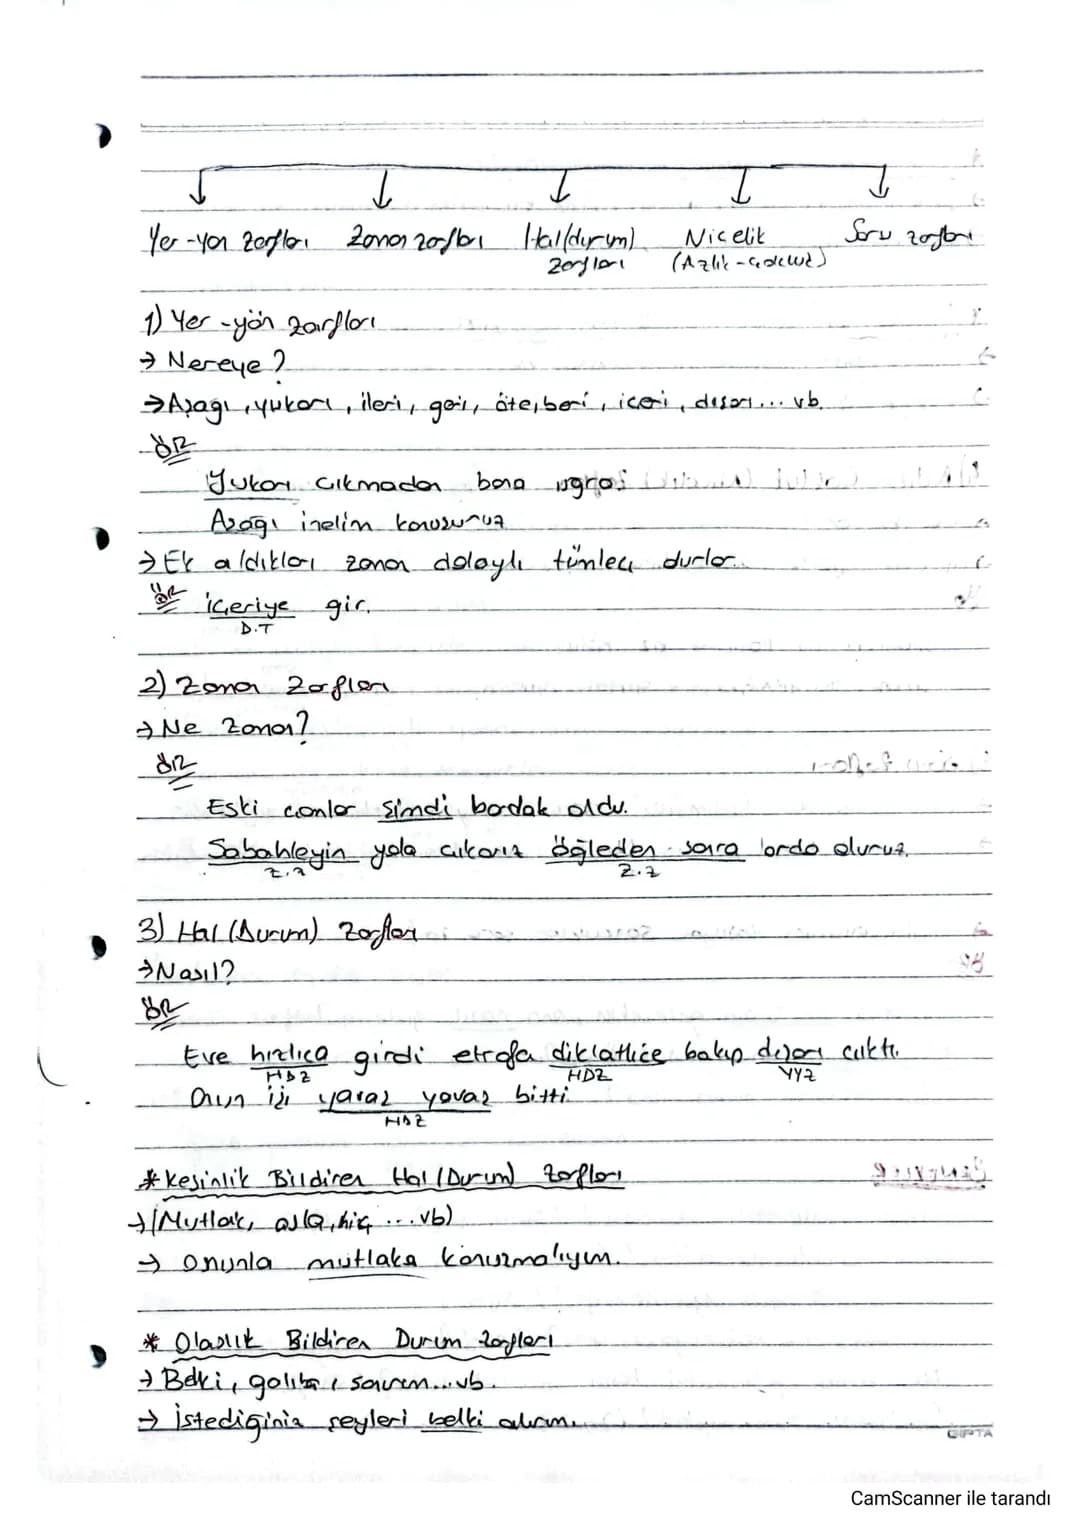 Yer-yön zarfları Zaman zarfları Hal(durum) Nicelik Soru zarfları
zarfları (Azlık-çokluk)
1) Yer-yön zarfları
→ Nereye?
→ Aşağı, yukarı, ileri, geri, öte, beri, içeri, dışarı... vb.
ÖR
Yukarı çıkmadan bana uğra
Aşağı inelim konusunuz
→ Ek aldıkları zaman dolaylı tümleç durlar.
ÖR içeriye gir.
D.T
2) Zaman Zarfları
→ Ne Zaman?
ÖR
Eski camlar şimdi bardak oldu.
Sabahleyin yola çıkarız öğleden sonra orda oluruz.
Z.Z Z.Z
3) Hal (Durum) Zarfları
→ Nasıl?
ÖR
Eve hızlıca girdi etrafa diklatlice bakıp dışarı çıktı.
HDZ HDZ YYZ
Onun işi yavaş yavaş bitti
HDZ
* Kesinlik Bildiren Hal (Durum) Zarfları
→ (Mutlak, asla, hiç ... vb)
→ Onunla mutlaka konuşmalıyım.
* Olasılık Bildiren Durum Zarfları
→ Belki, galiba, sanırım... vb.
→ İstediğiniz şeyleri belki alırım.
GIPTA
CamScanner ile tarandı